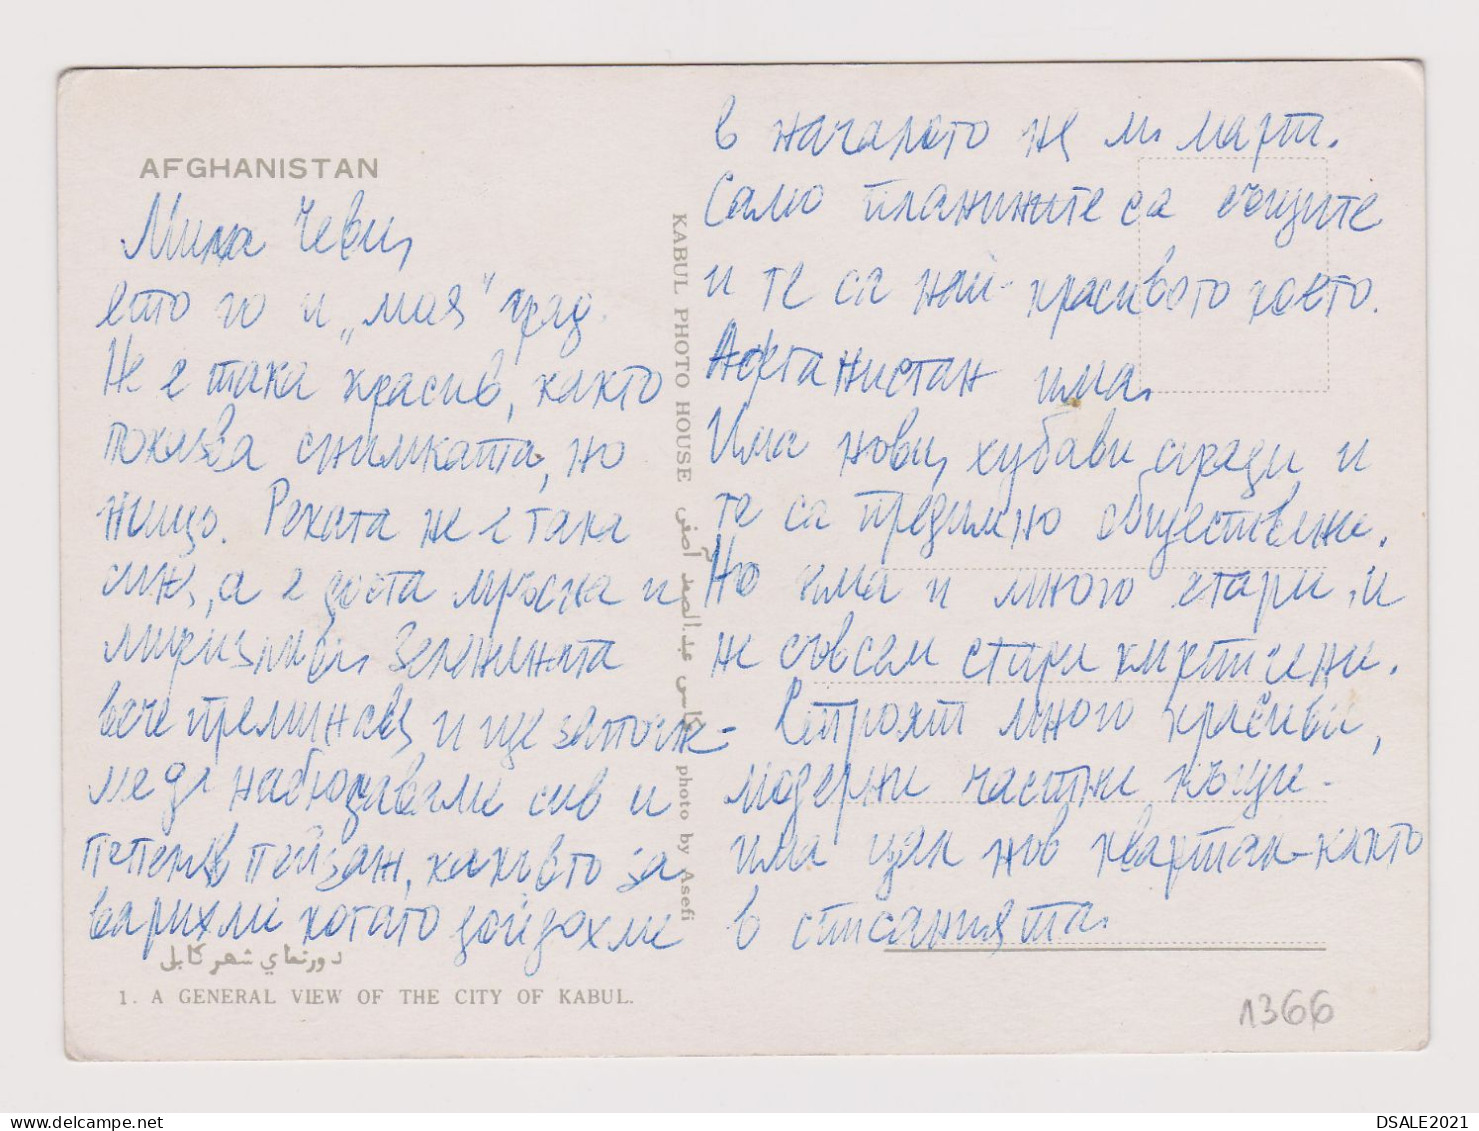 AFGHANISTAN
Мила Чеви,
ето го и „моя“ град.
Не е така красив, както
показва снимката, но
нищо. Реката не е така
синя, а е доста мръсна и
Зеленината
вече преминава и ще започн-
ме да наблюдаваме сив и
пепеляв пейзаж, какъвто за
варихме когато дойдохме
دورنمای شهر کابل
1. A GENERAL VIEW OF THE CITY OF KABUL.
KABUL PHOTO HOUSE عکاس عبدالصمد آصفی photo by Asefi
в началото на м. март.
Само планините са същите
и те са най-красивото което
Афганистан има.
Има нови, хубави сгради и
те са предимно обществени.
Но има и много стари и
не съвсем стари кирпичени.
Строят много красиви,
модерни частни къщи -
има цял нов квартал-както
в списанията.
1366
DSALE2021